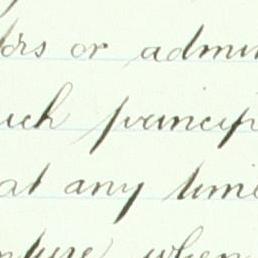 ors or admin
uch princip
at any time
when